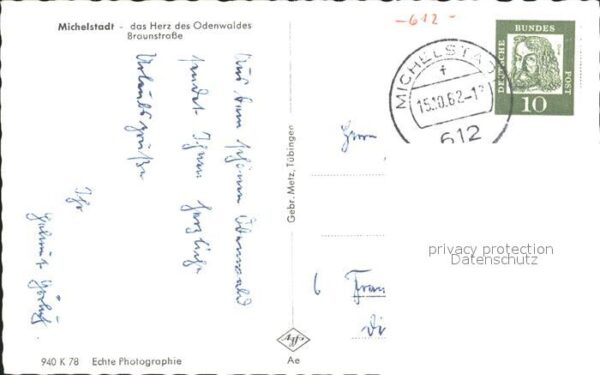 Michelstadt - das Herz des Odenwaldes
Braunstraße
Aus dem schönen Odenwald
sendet Ihnen herzliche
Urlaubsgrüße
Ihr
Helmut
940 K 78 Echte Photographie
Gebr. Metz, Tübingen
Ae
-612-
MICHELSTADT
15.10.62-1
612
DEUTSCHE
BUNDES
POST
10
Herrn
6 Fran
privacy protection
Datenschutz